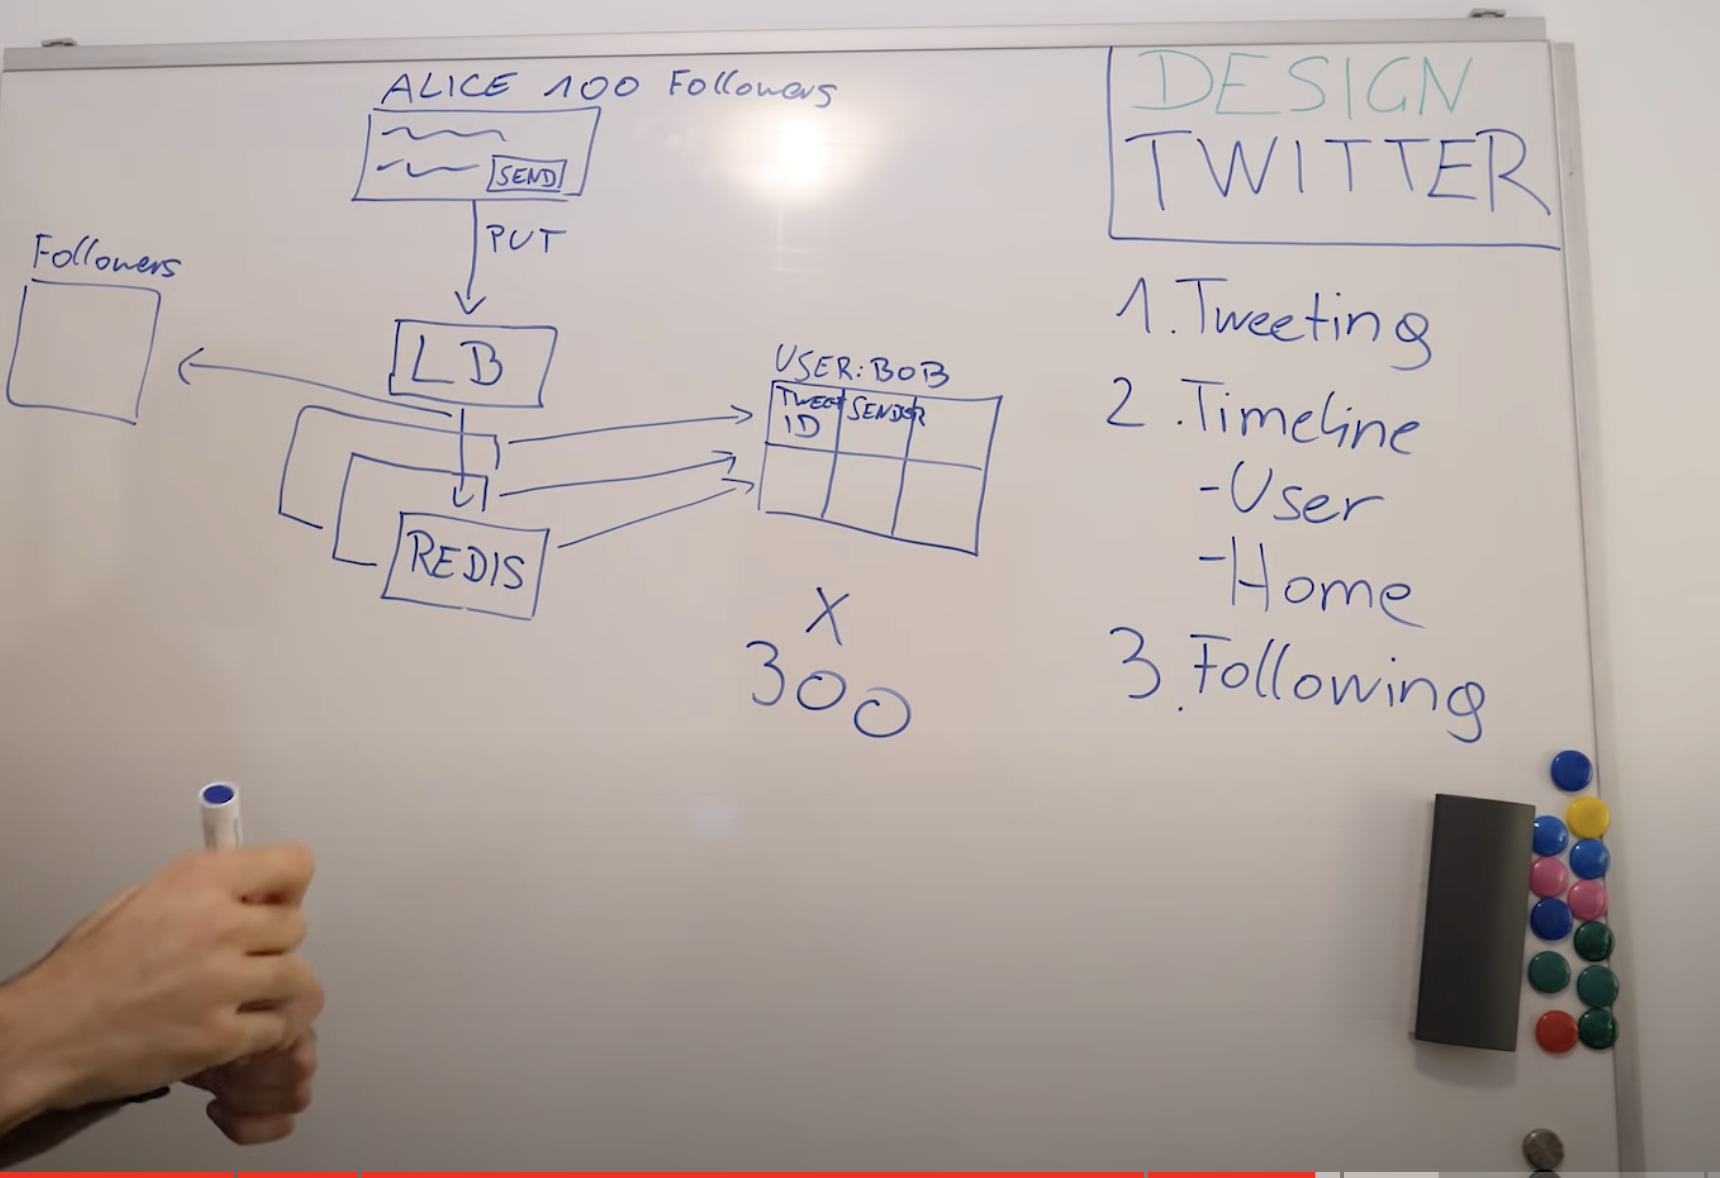 ALICE 100 Followers
SEND
PUT
Followers
LB
REDIS
USER: BOB
TWEET ID
SENDER
X
300
DESIGN
TWITTER
1. Tweeting
2. Timeline
- User
- Home
3. Following